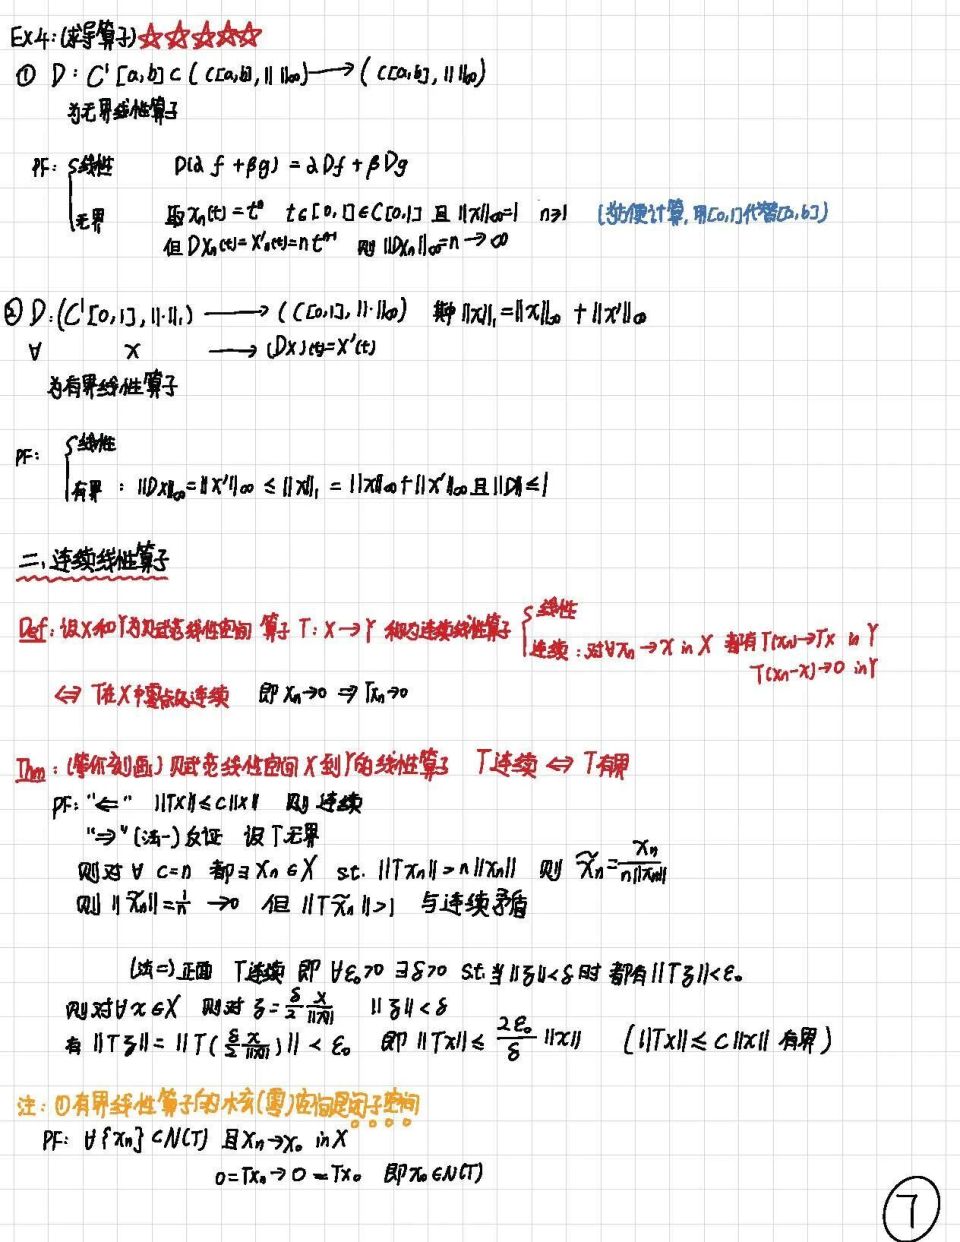 Ex4:(求导算子)☆☆☆☆☆
① D: C¹[a,b]⊂(C[a,b],‖‖∞)⟶(C[a,b],‖‖∞)
为无界线性算子
PF: { 线性 D(αf+βg)=αDf+βDg
无界 取xₙ(t)=tⁿ t∈[0,1]∈C[0,1] 且‖x‖∞=1 n≥1 (为方便计算,用[0,1]代替[a,b])
但Dxₙ(t)=x'ₙ(t)=ntⁿ⁻¹ 则‖Dxₙ‖∞=n→∞
② D:(C¹[0,1],‖·‖₁)⟶(C[0,1],‖·‖∞) 其中‖x‖₁=‖x‖∞+‖x'‖∞
∀ x ⟶(Dx)(t)=x'(t)
为有界线性算子
PF: { 线性
有界:‖Dx‖∞=‖x'‖∞≤‖x‖₁=‖x‖∞+‖x'‖∞且‖D‖≤1
二、连续线性算子
Def:设X和Y为赋范线性空间 算子T:X→Y 称为连续线性算子 { 线性
连续:对∀xₙ→x in X 都有T(xₙ)→Tx in Y
T(xₙ-x)→0 in Y
⇔ T在X中零点处连续 即xₙ→0 ⇒ Txₙ→0
Thm:(等价刻画)赋范线性空间X到Y的线性算子 T连续 ⇔ T有界
PF:"⇐" ‖Tx‖≤C‖x‖ 则连续
"⇒"(法一)反证 设T无界
则对∀ c=n 都∃xₙ∈X s.t. ‖Txₙ‖>n‖xₙ‖ 则 x̃ₙ=xₙ/(n‖xₙ‖)
则‖x̃ₙ‖=1/n →0 但‖Tx̃ₙ‖>1 与连续矛盾
(法二)正面 T连续 即∀ε₀>0 ∃δ>0 s.t.当‖ξ‖<δ时 都有‖Tξ‖<ε₀
则对∀x∈X 则对ξ=(δ/2)(x/‖x‖) ‖ξ‖<δ
有‖Tξ‖=‖T((δ/2)(x/‖x‖))‖<ε₀ 即‖Tx‖≤(2ε₀/δ)‖x‖ (‖Tx‖≤C‖x‖ 有界)
注:①有界线性算子的核(零)空间是闭子空间
PF: ∀{xₙ}⊂N(T) 且xₙ→x₀ in X
0=Txₙ→0=Tx₀ 即x₀∈N(T)
7